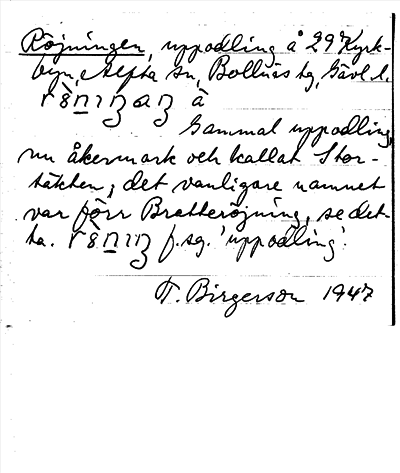 Röjningen, uppodling å 29 Kyrk-
byn, Alfta sn, Bollnäs tg, Gävl. l.
à
Gammal uppodling,
nu åkermark och kallat Stor-
täkten; det vanligare namnet
var förr Bratteröjning, se det-
ta. f. sg. 'uppodling'.
T. Birgerson 1947